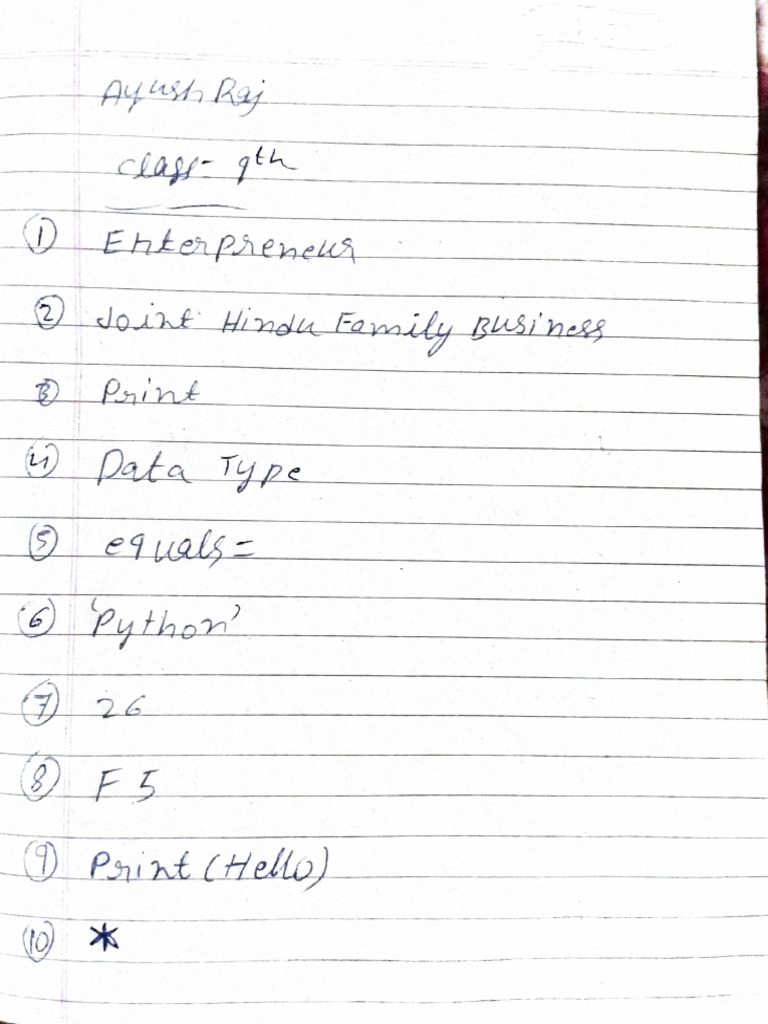 Ayush Raj
Class- 9th
① Enterpreneur
② Joint Hindu Family Business
③ Print
④ Data Type
⑤ equals =
⑥ 'Python'
⑦ 26
⑧ F 5
⑨ Print (Hello)
⑩ *